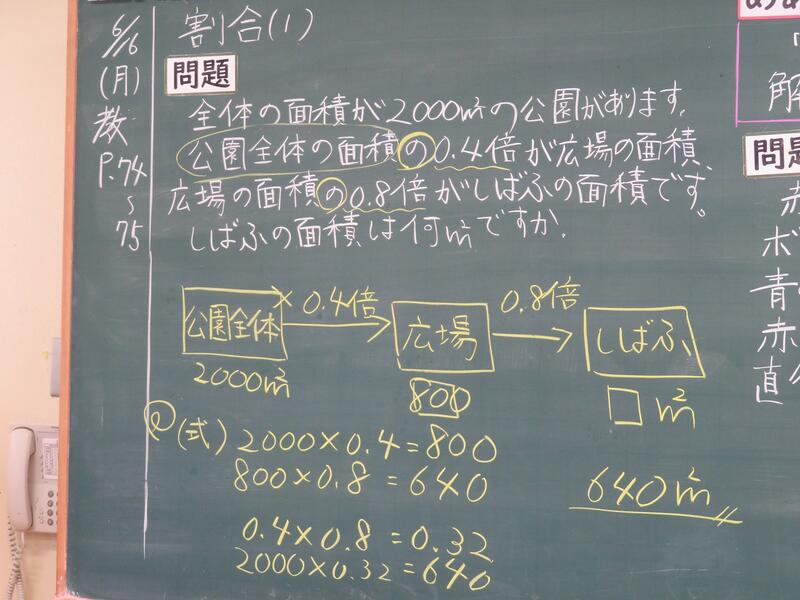 6/6
(月)
教
P.74
~
75
割合(1)
問題
全体の面積が2000m²の公園があります。
公園全体の面積の0.4倍が広場の面積、
広場の面積の0.8倍がしばふの面積です。
しばふの面積は何m²ですか。
公園全体
×0.4倍
広場
0.8倍
しばふ
2000m²
800
□m²
(式) 2000×0.4=800
800×0.8=640
640m²
0.4×0.8=0.32
2000×0.32=640
解
問題
赤
ボ
青の
赤
直